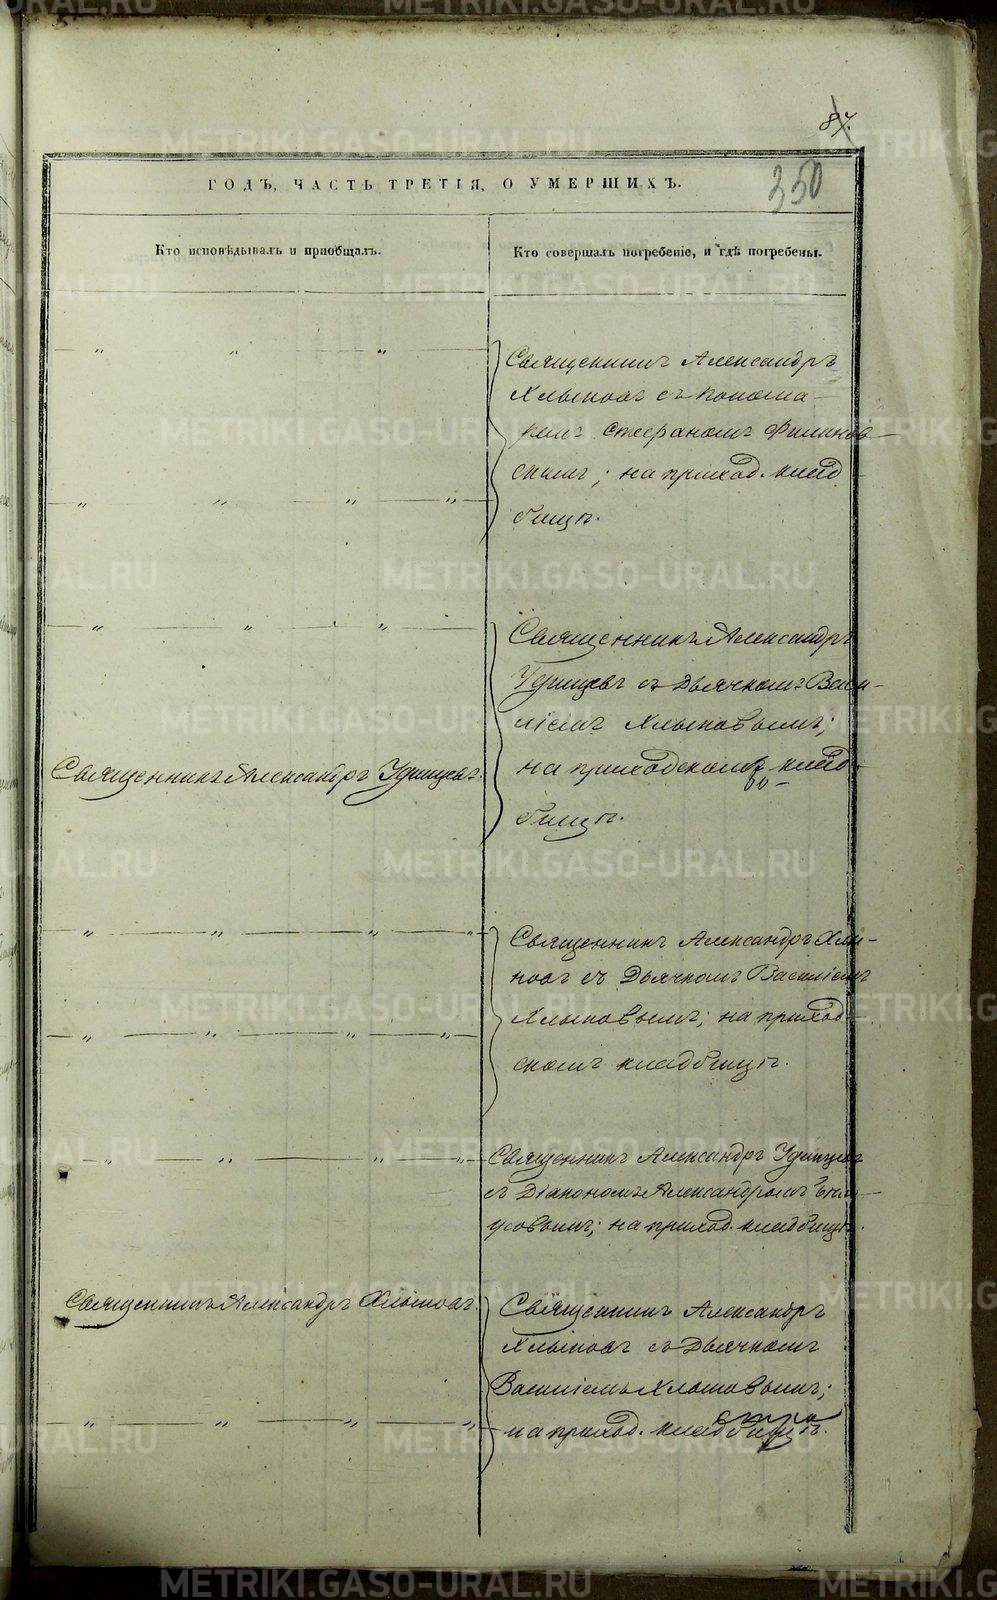 87.
350
ГОДЪ, ЧАСТЬ ТРЕТІЯ, О УМЕРШИХЪ.
Кто исповѣдывалъ и пріобщалъ.
Кто совершалъ погребеніе, и гдѣ погребены.
Священникъ Александръ
Хлыновъ съ понома-
ремъ Стефаномъ
скимъ; на приход. клад
бищѣ.
Священникъ Александръ
Удинцевъ съ Дьячкомъ Васи-
ліемъ Хлыновымъ;
на приходскомъ клад-
бищѣ.
Священникъ Александръ Удинцевъ.
Священникъ Александръ Хлы-
новъ съ Дьячкомъ Василіемъ
Хлыновымъ; на приход-
скомъ кладбищѣ.
Священникъ Александръ Удинцевъ
съ Діакономъ Александромъ
на приход. кладбищѣ.
Священникъ Александръ Хлыновъ.
Священникъ Александръ
Хлыновъ съ Дьячкомъ
Василіемъ Хлыновымъ;
на приход. кладбищѣ.
METRIKI.GASO-URAL.RU